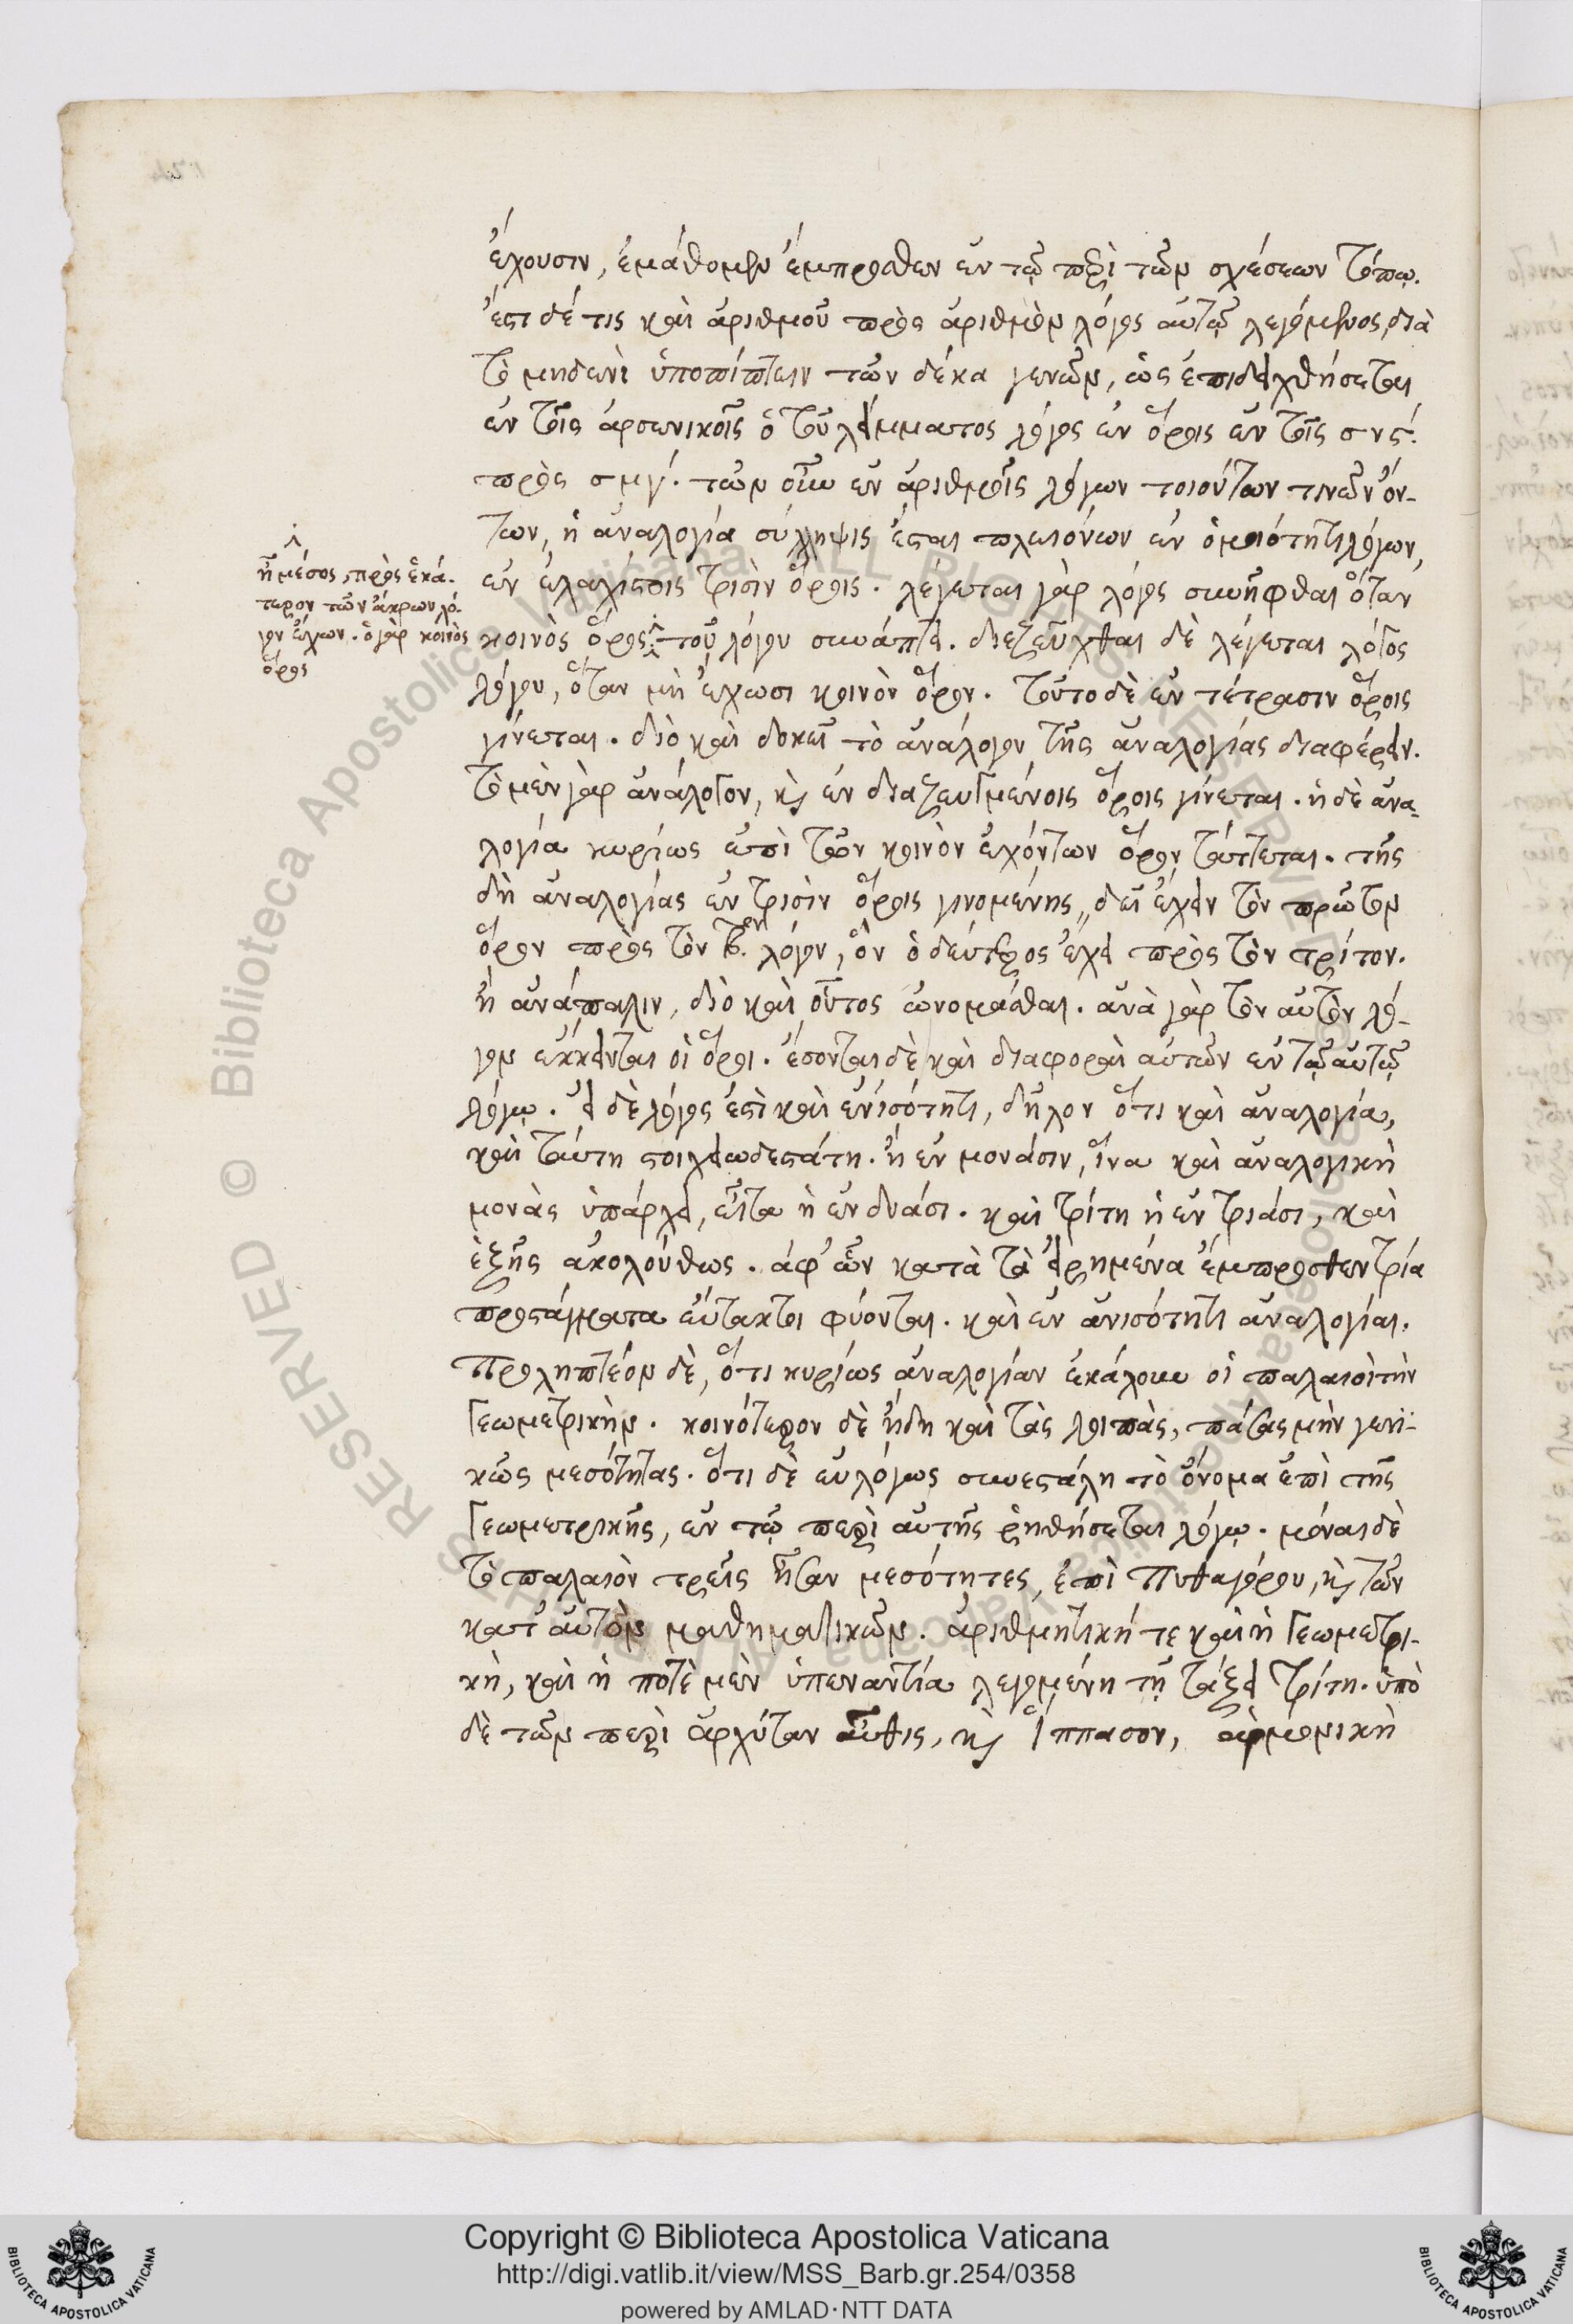 ἔχουσιν, ἐμάθομεν ἔμπροσθεν ἐν τῷ περὶ τῶν σχέσεων τόπῳ.
ἔστι δέ τις καὶ ἀριθμοῦ πρὸς ἀριθμὸν λόγος αὐτῷ λεγόμενος, διὰ
τὸ μηδενὶ ὑποπίπτειν τῶν δέκα γενῶν, ὡς ἐπιδειχθήσεται
ἐν τοῖς ἁρσενικοῖς ὁ τοῦ λείμματος λόγος ἐν ὅροις ἐν τοῖς σνς.
πρὸς σμγ. τῶν οὖν ἐν ἀριθμοῖς λόγων τοιούτων τινῶν ὄν-
των, ἡ ἀναλογία σύλληψις ἔσται πλειόνων ἐν ὁμοιότητι λόγων,
ἐν ἐλαχίστοις τρισὶν ὅροις. λέγεται γὰρ λόγος συνῆφθαι ὅταν
κοινὸς ὅρος τοῦ λόγου συνάπτει. διεζεῦχθαι δὲ λέγεται λόγος
λόγου, ὅταν μὴ ἔχωσι κοινὸν ὅρον. τοῦτο δὲ ἐν τέτρασιν ὅροις
γίνεται. διὸ καὶ δοκεῖ τὸ ἀνάλογον τῆς ἀναλογίας διαφέρειν.
τὸ μὲν γὰρ ἀνάλογον, καὶ ἐν διαζευγμένοις ὅροις γίνεται. ἡ δὲ ἀνα-
λογία κυρίως ἐπὶ τῶν κοινὸν ἐχόντων ὅρον τάττεται. τῆς
δὴ ἀναλογίας ἐν τρισὶν ὅροις γινομένης, δεῖ ἔχειν τὸν πρῶτον
ὅρον πρὸς τὸν β.ον λόγον, ὃν ὁ δεύτερος ἔχει πρὸς τὸν τρίτον.
ἢ ἀνάπαλιν, διὸ καὶ οὕτος ὠνομάσθαι. ἀνὰ γὰρ τὸν αὐτὸν λό-
γον ἔκκεινται οἱ ὅροι. ἔσονται δὲ καὶ διαφοραὶ αὐτῶν ἐν τῷ αὐτῷ
λόγῳ. εἰ δὲ λόγος ἐστὶ καὶ ἐν ἰσότητι, δῆλον ὅτι καὶ ἀναλογία,
καὶ ταύτη στοιχειωδεστάτη. ἡ ἐν μονάσιν, ἵνα καὶ ἀναλογικὴ
μονὰς ὑπάρχει, εἶτα ἡ ἐν δυάσι. καὶ τρίτη ἡ ἐν τριάσι, καὶ
ἑξῆς ἀκολούθως. ἀφ' ὧν κατὰ τὰ εἰρημένα ἔμπροσθεν τρία
προστάγματα εὔτακτοι φύονται. καὶ ἐν ἀνισότητι ἀναλογίαι.
Προληπτέον δὲ, ὅτι κυρίως ἀναλογίαν ἐκάλουν οἱ παλαιοὶ τὴν
γεωμετρικὴν. κοινότερον δὲ ἤδη καὶ τὰς λοιπὰς, πάσας μὴν γενι-
κῶς μεσότητας. ὅτι δὲ εὐλόγως συνεστάλη τὸ ὄνομα ἐπὶ τῆς
γεωμετρικῆς, ἐν τῷ περὶ αὐτῆς ῥηθήσεται λόγῳ. μόναι δὲ
τὸ παλαιὸν τρεῖς ἦσαν μεσότητες, ἐπὶ Πυθαγόρου, καὶ τῶν
κατ' αὐτὸν μαθηματικῶν. ἀριθμητική τε καὶ ἡ γεωμετρι-
κὴ, καὶ ἡ ποτὲ μὲν ὑπεναντία λεγομένη τῇ τάξει τρίτη. ὑπὸ
δὲ τῶν περὶ ἀρχύταν αὖθις, καὶ ἵππασον, ἁρμονικὴ
ἦ μέσος, πρὸς ἑκά-
τερον τῶν ἄκρων λό-
γον ἔχων. ὁ γὰρ κοινὸς
ὅρος
Copyright © Biblioteca Apostolica Vaticana
http://digi.vatlib.it/view/MSS_Barb.gr.254/0358
powered by AMLAD·NTT DATA
BIBLIOTECA APOSTOLICA VATICANA
BIBLIOTECA APOSTOLICA VATICANA